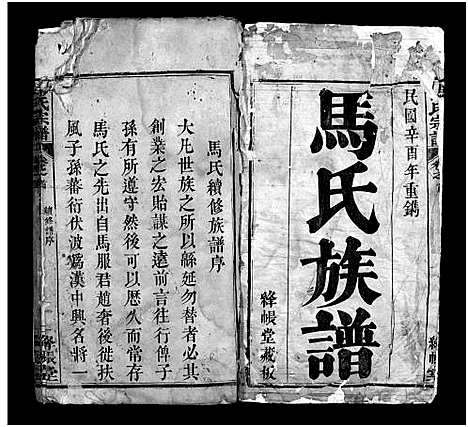 民國辛酉年重鐫
馬氏族譜
絳帳堂藏板
馬氏續修族譜序
大凡世族之所以緜延勿替者必其
創業之宏貽謀之遠前言往行俾子
孫有所遵守然後可以歷久而常存
馬氏之先出自馬服君趙奢後從扶
風子孫蕃衍伏波為漢中興名將一
氏宗譜
續修譜序
絳帳堂